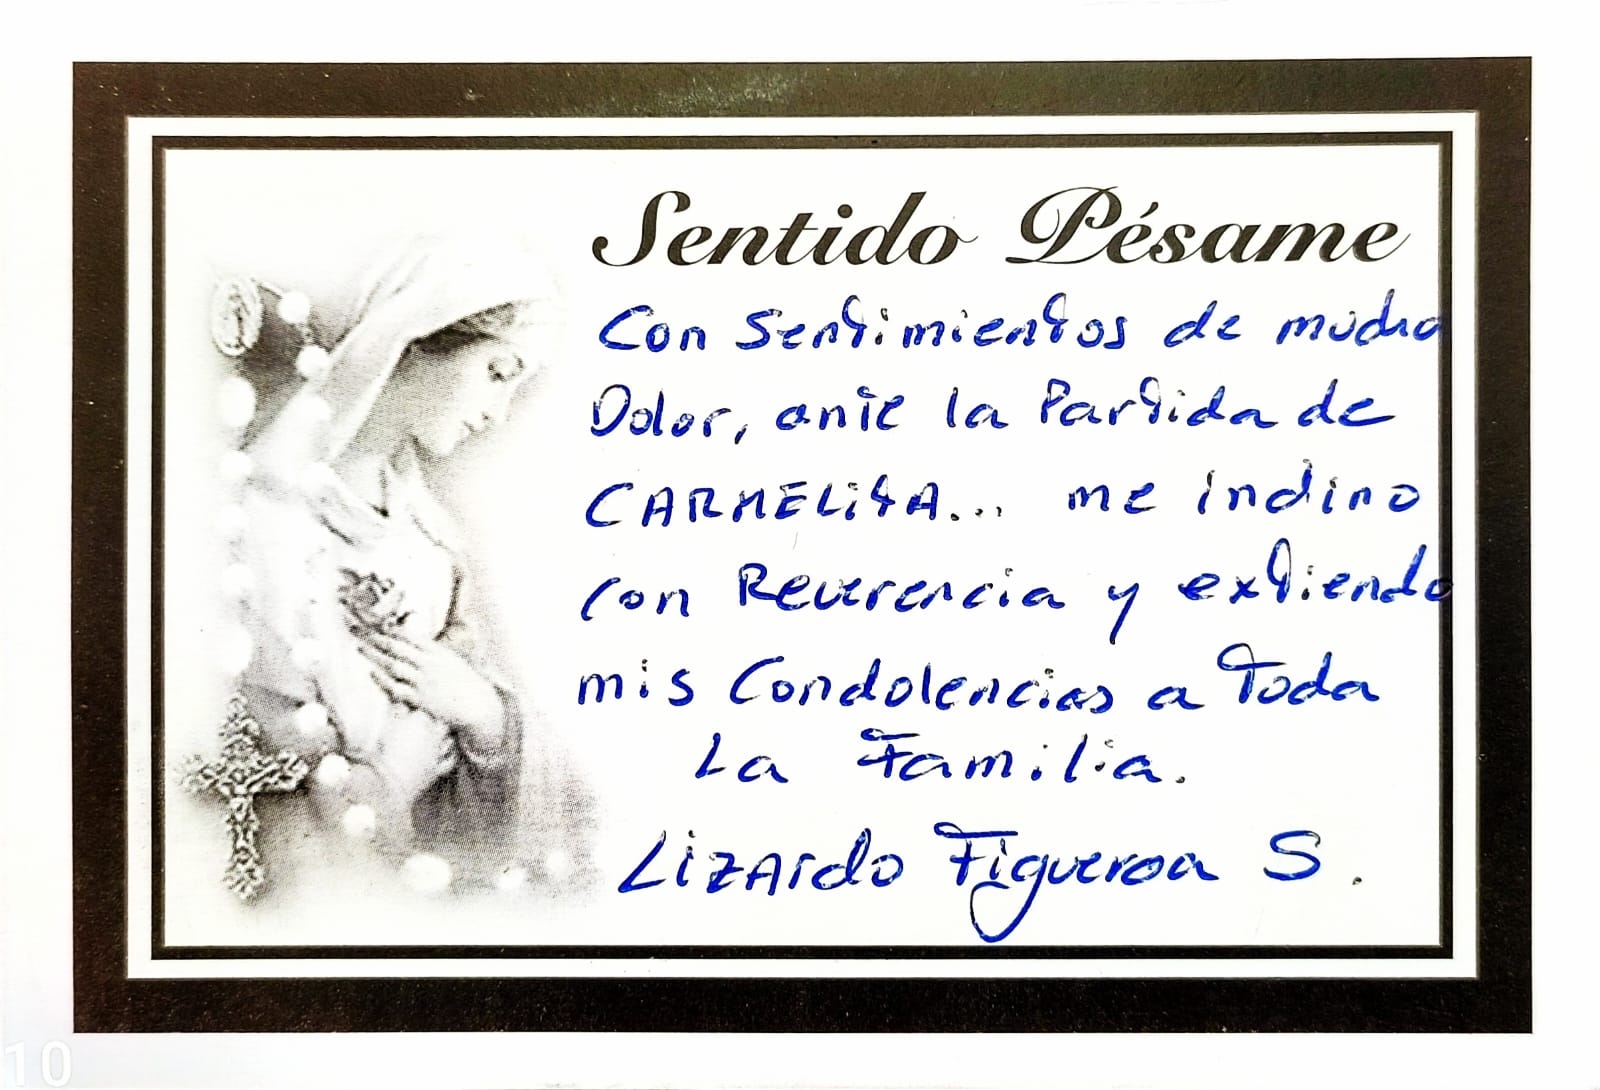 Sentido Pésame
Con Sentimientos de mucho
Dolor, ante la Partida de
CARMELitA... me inclino
con Reverencia y extiendo
mis Condolencias a Toda
La Familia.
LiZARdo Figueroa S.
10